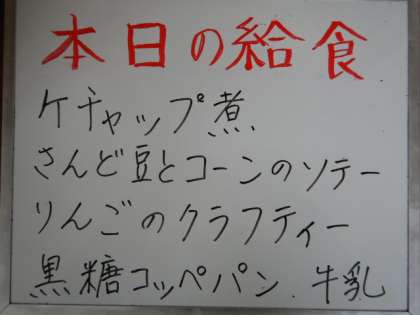 本日の給食
ケチャップ煮
さんど豆とコーンのソテー
りんごのクラフティー
黒糖コッペパン.牛乳